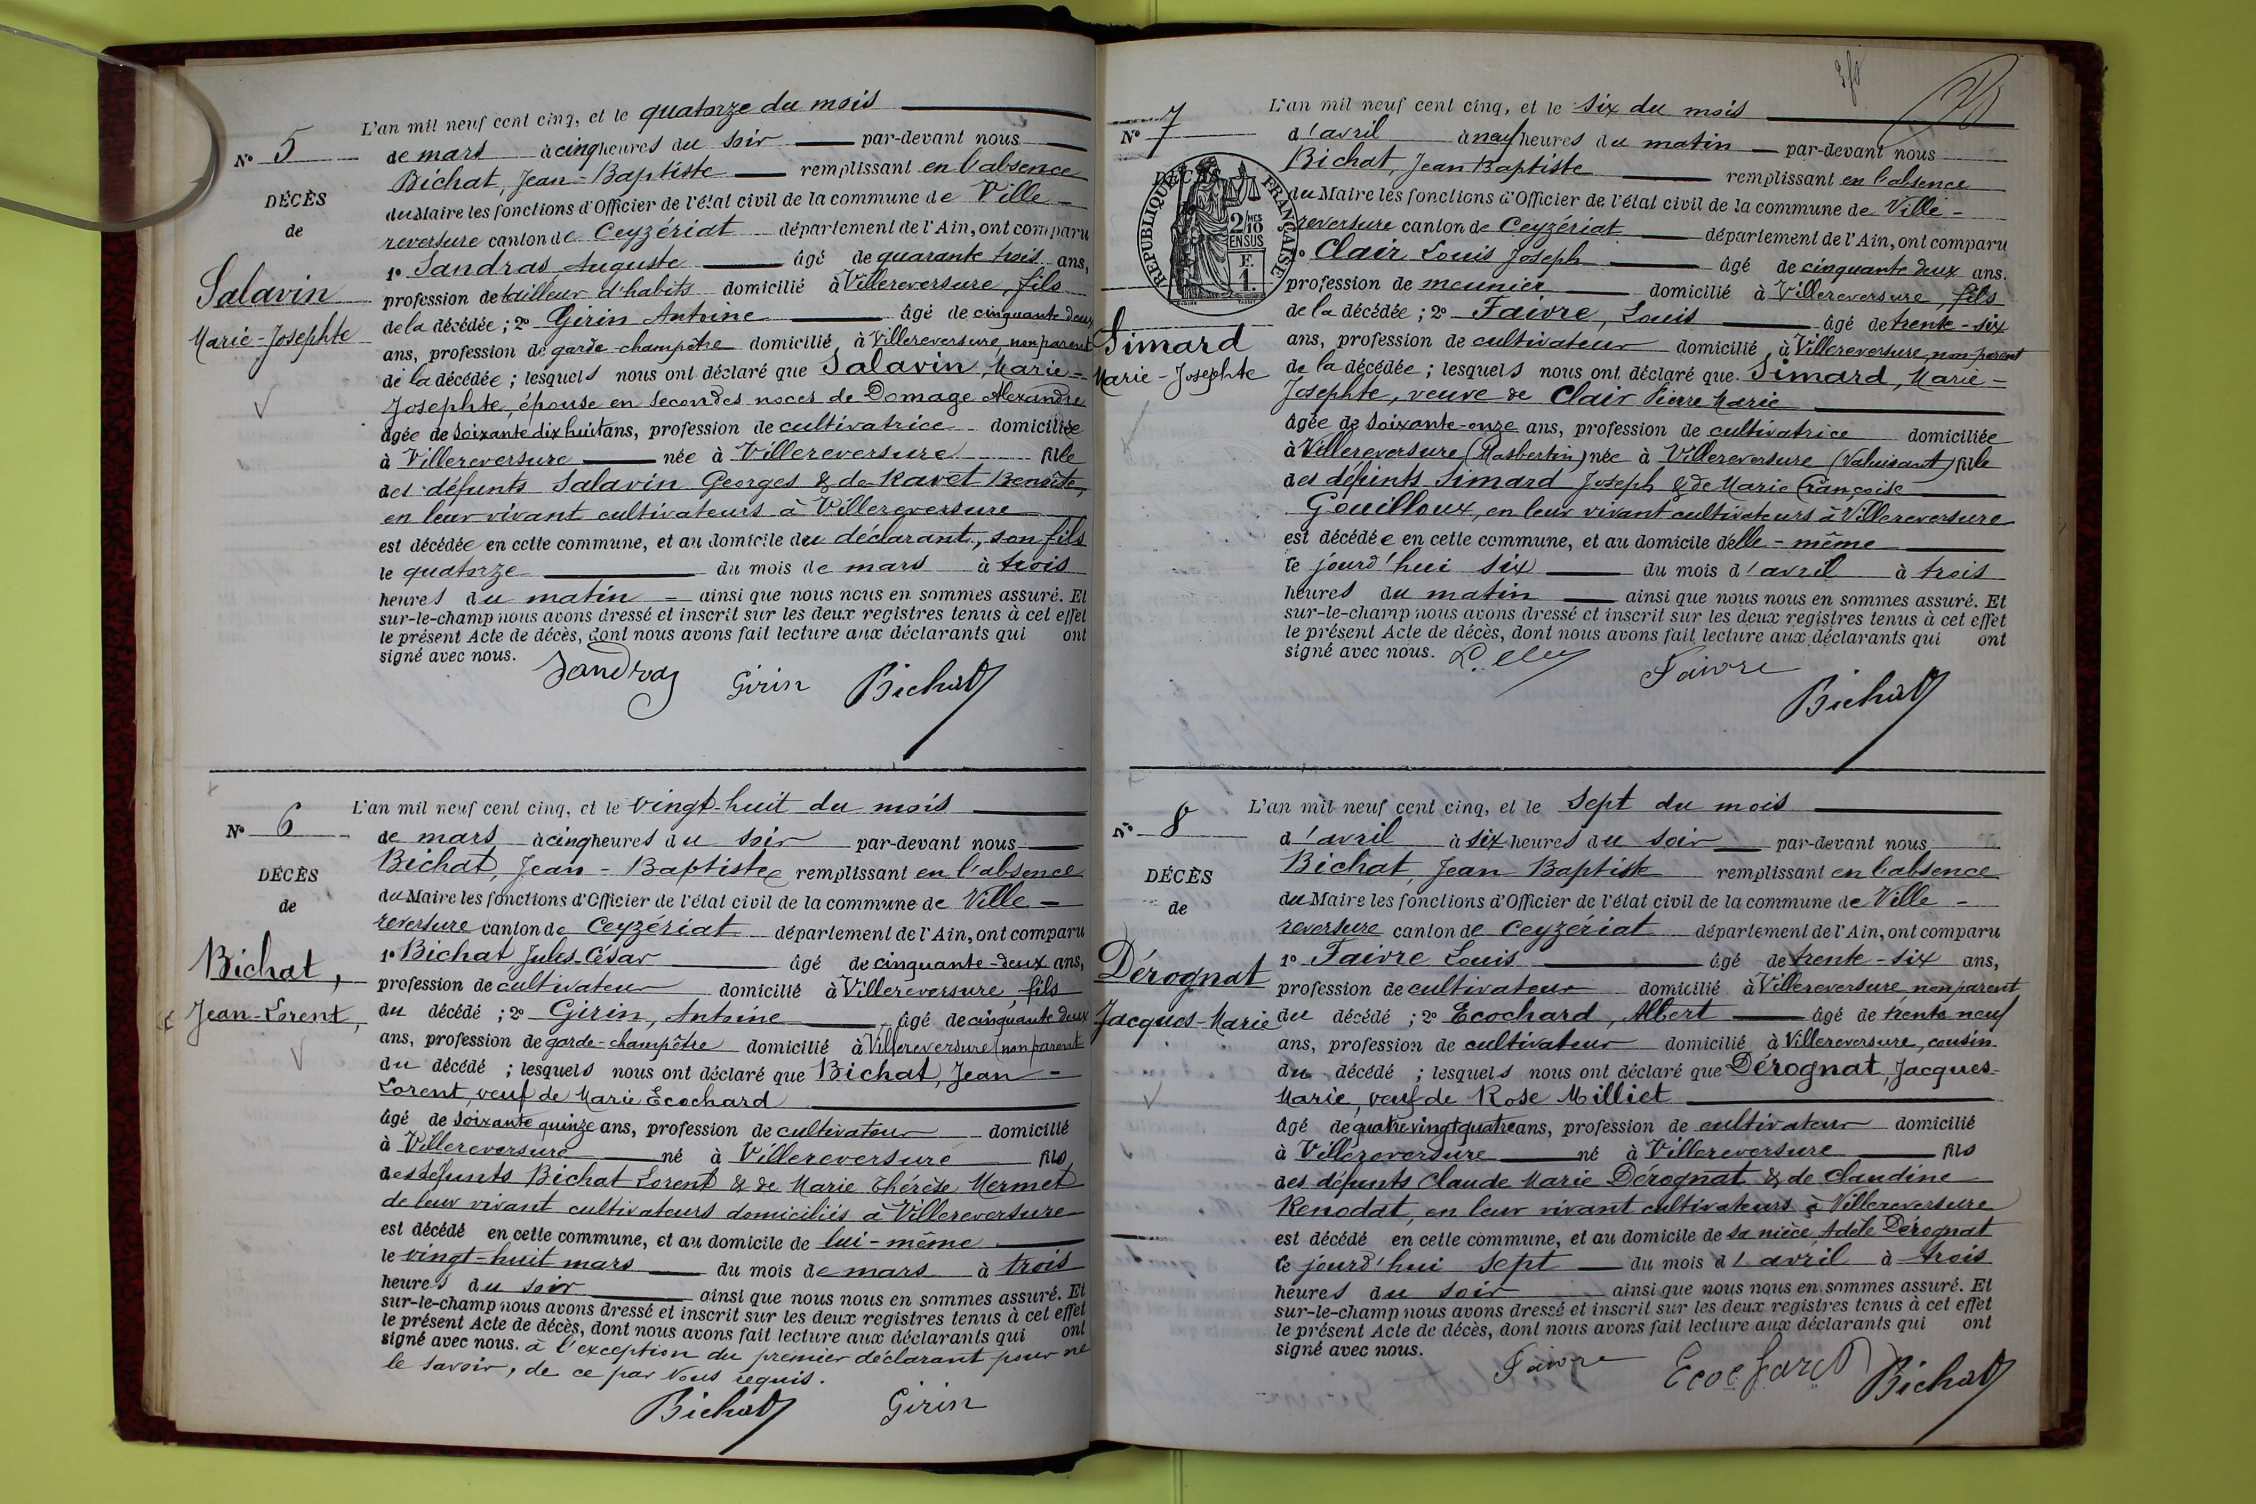 L'an mil neuf cent cinq, et le quatorze du mois
N° 5
de mars à cinq heures du soir par-devant nous
Bichat, Jean-Baptiste remplissant en l'absence
DÉCÈS
du Maire les fonctions d'Officier de l'état civil de la commune de Ville-
de
reversure canton de Ceyzériat département de l'Ain, ont comparu
1° Sandras Auguste âgé de quarante trois ans,
Salavin
profession de tailleur d'habits domicilié à Villereversure, fils
Marie-Josephte
de la décédée; 2° Girin Antoine âgé de cinquante deux
ans, profession de garde-champêtre domicilié à Villereversure, non parent
de la décédée; lesquels nous ont déclaré que Salavin, Marie-
Josephte, épouse en secondes noces de Domage Alexandre
âgée de soixante dix huit ans, profession de cultivatrice domiciliée
à Villereversure née à Villereversure fille
des défunts Salavin Georges & de Ravet Benoîte,
en leur vivant cultivateurs à Villereversure
est décédée en cette commune, et au domicile du déclarant, son fils
le quatorze du mois de mars à trois
heures du matin ainsi que nous nous en sommes assuré. Et
sur-le-champ nous avons dressé et inscrit sur les deux registres tenus à cet effet
le présent Acte de décès, dont nous avons fait lecture aux déclarants qui ont
signé avec nous.
Sandras Girin Bichat
L'an mil neuf cent cinq, et le vingt-huit du mois
N° 6
de mars à cinq heures du soir par-devant nous
Bichat, Jean-Baptiste remplissant en l'absence
DÉCÈS
du Maire les fonctions d'Officier de l'état civil de la commune de Ville-
de
reversure canton de Ceyzériat département de l'Ain, ont comparu
1° Bichat Jules-César âgé de cinquante-deux ans,
Bichat,
profession de cultivateur domicilié à Villereversure, fils
Jean-Lorent,
du décédé; 2° Girin, Antoine âgé de cinquante deux
ans, profession de garde-champêtre domicilié à Villereversure, non parent
du décédé; lesquels nous ont déclaré que Bichat, Jean-
Lorent, veuf de Marie Ecochard
âgé de soixante quinze ans, profession de cultivateur domicilié
à Villereversure né à Villereversure fils
des défunts Bichat Lorent & de Marie Thérèse Mermet
de leur vivant cultivateurs domiciliés à Villereversure
est décédé en cette commune, et au domicile de lui-même
le vingt-huit mars du mois de mars à trois
heures du soir ainsi que nous nous en sommes assuré. Et
sur-le-champ nous avons dressé et inscrit sur les deux registres tenus à cet effet
le présent Acte de décès, dont nous avons fait lecture aux déclarants qui ont
signé avec nous. à l'exception du premier déclarant pour ne
le savoir, de ce par Nous requis.
Bichat Girin
L'an mil neuf cent cinq, et le six du mois
N° 7
d'avril à neuf heures du matin par-devant nous
Bichat, Jean Baptiste remplissant en l'absence
RÉPUBLIQUE FRANÇAISE
2/10 MES EN SUS
F. 1.
du Maire les fonctions d'Officier de l'état civil de la commune de Ville-
reversure canton de Ceyzériat département de l'Ain, ont comparu
1° Clair Louis Joseph âgé de cinquante deux ans.
profession de meunier domicilié à Villereversure, fils
de la décédée; 2° Faivre, Louis âgé de trente-six
Simard
ans, profession de cultivateur domicilié à Villereversure, non-parent
Marie-Josephte
de la décédée; lesquels nous ont déclaré que Simard, Marie-
Josephte, veuve de Clair Pierre Marie
âgée de soixante-onze ans, profession de cultivatrice domiciliée
à Villereversure (Masbertin) née à Villereversure (Valuisant) fille
des défunts Simard Joseph & de Marie Françoise
Gouilloux, en leur vivant cultivateurs à Villereversure
est décédée en cette commune, et au domicile d'elle-même
le jourd'hui six du mois d'avril à trois
heures du matin ainsi que nous nous en sommes assuré. Et
sur-le-champ nous avons dressé et inscrit sur les deux registres tenus à cet effet
le présent Acte de décès, dont nous avons fait lecture aux déclarants qui ont
signé avec nous.
Faivre
Bichat
L'an mil neuf cent cinq, et le sept du mois
N° 8
d'avril à six heures du soir par-devant nous
Bichat, Jean Baptiste remplissant en l'absence
DÉCÈS
du Maire les fonctions d'Officier de l'état civil de la commune de Ville-
de
reversure canton de Ceyzériat département de l'Ain, ont comparu
1° Faivre Louis âgé de trente-six ans,
Dérognat
profession de cultivateur domicilié à Villereversure, non parent
Jacques-Marie
du décédé; 2° Ecochard, Albert âgé de trente neuf
ans, profession de cultivateur domicilié à Villereversure, cousin
du décédé; lesquels nous ont déclaré que Dérognat, Jacques-
Marie, veuf de Rose Milliet
âgé de quatre vingt quatre ans, profession de cultivateur domicilié
à Villereversure né à Villereversure fils
des défunts Claude Marie Dérognat & de Claudine
Renodat, en leur vivant cultivateurs à Villereversure
est décédé en cette commune, et au domicile de sa nièce, Adèle Dérognat
le jourd'hui sept du mois d'avril à trois
heures du soir ainsi que nous nous en sommes assuré. Et
sur-le-champ nous avons dressé et inscrit sur les deux registres tenus à cet effet
le présent Acte de décès, dont nous avons fait lecture aux déclarants qui ont
signé avec nous.
Faivre Ecochard Bichat